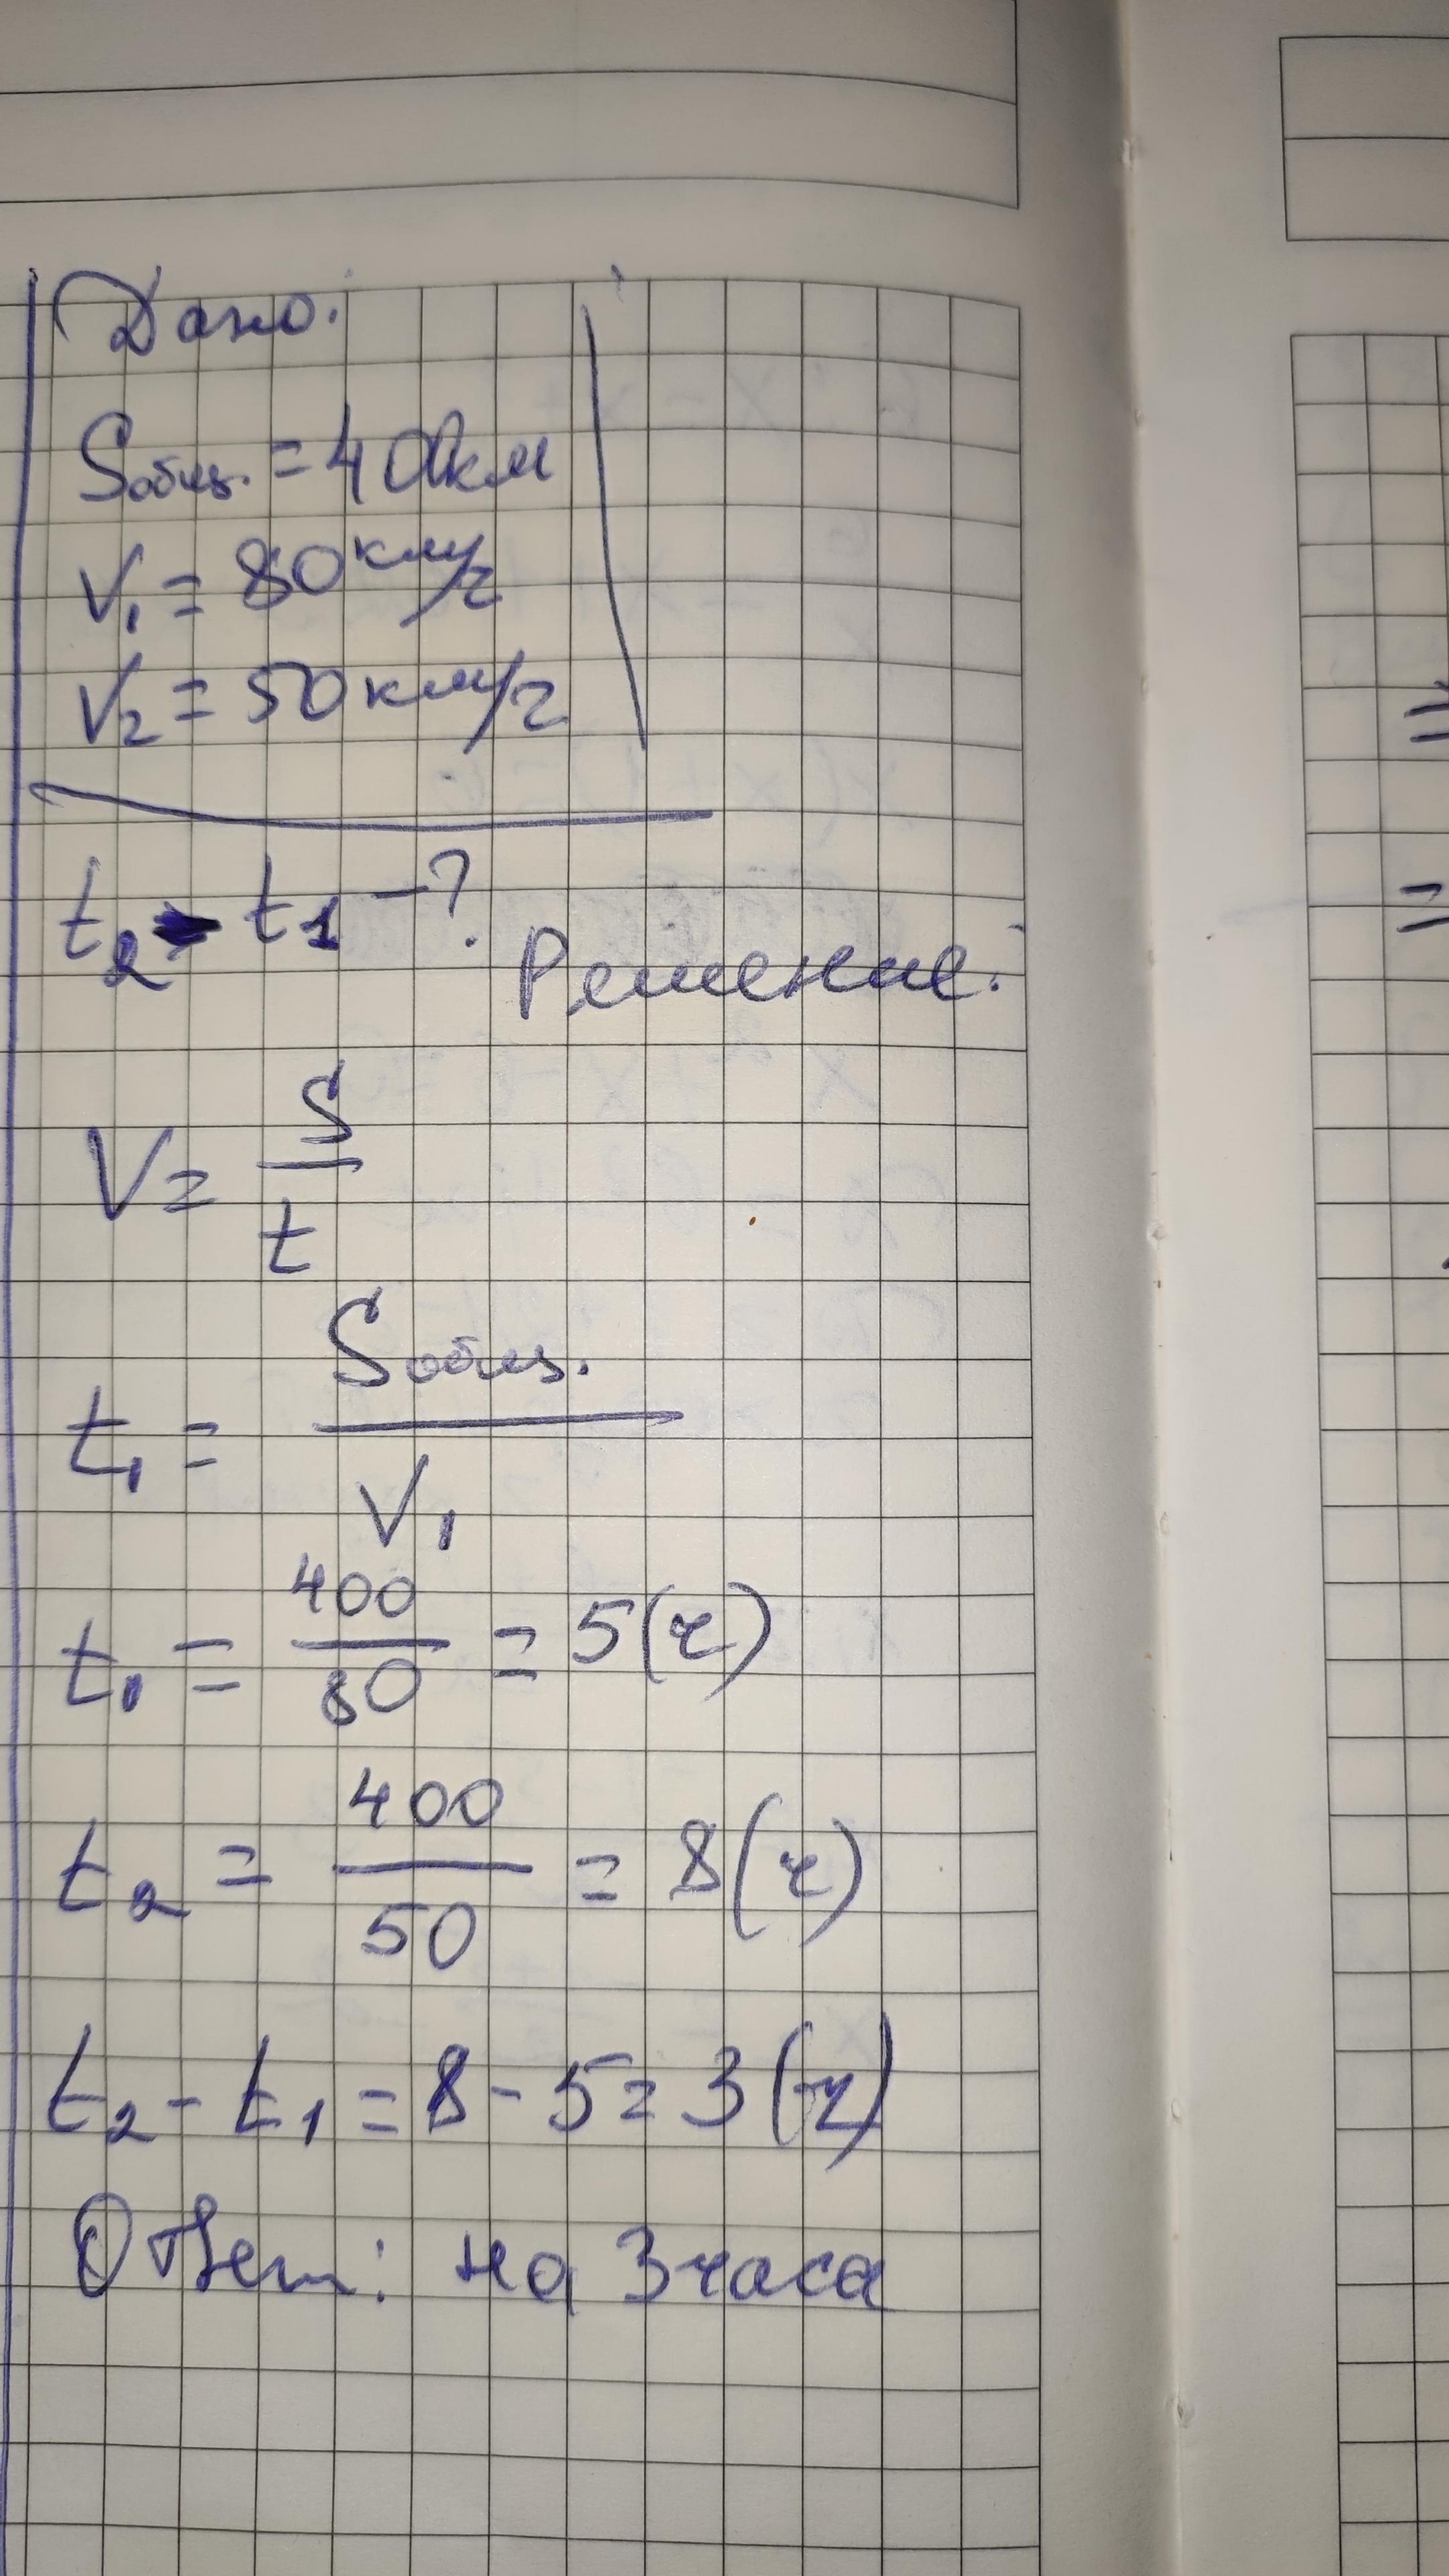 Дано:
Sобщ. = 400км
V₁ = 80 км/ч
V₂ = 50 км/ч
t₂ - t₁ - ?
Решение:
V = S/t
t₁ = Sобщ./V₁
t₁ = 400/80 = 5(ч)
t₂ = 400/50 = 8(ч)
t₂ - t₁ = 8 - 5 = 3(ч)
Ответ: на 3 часа